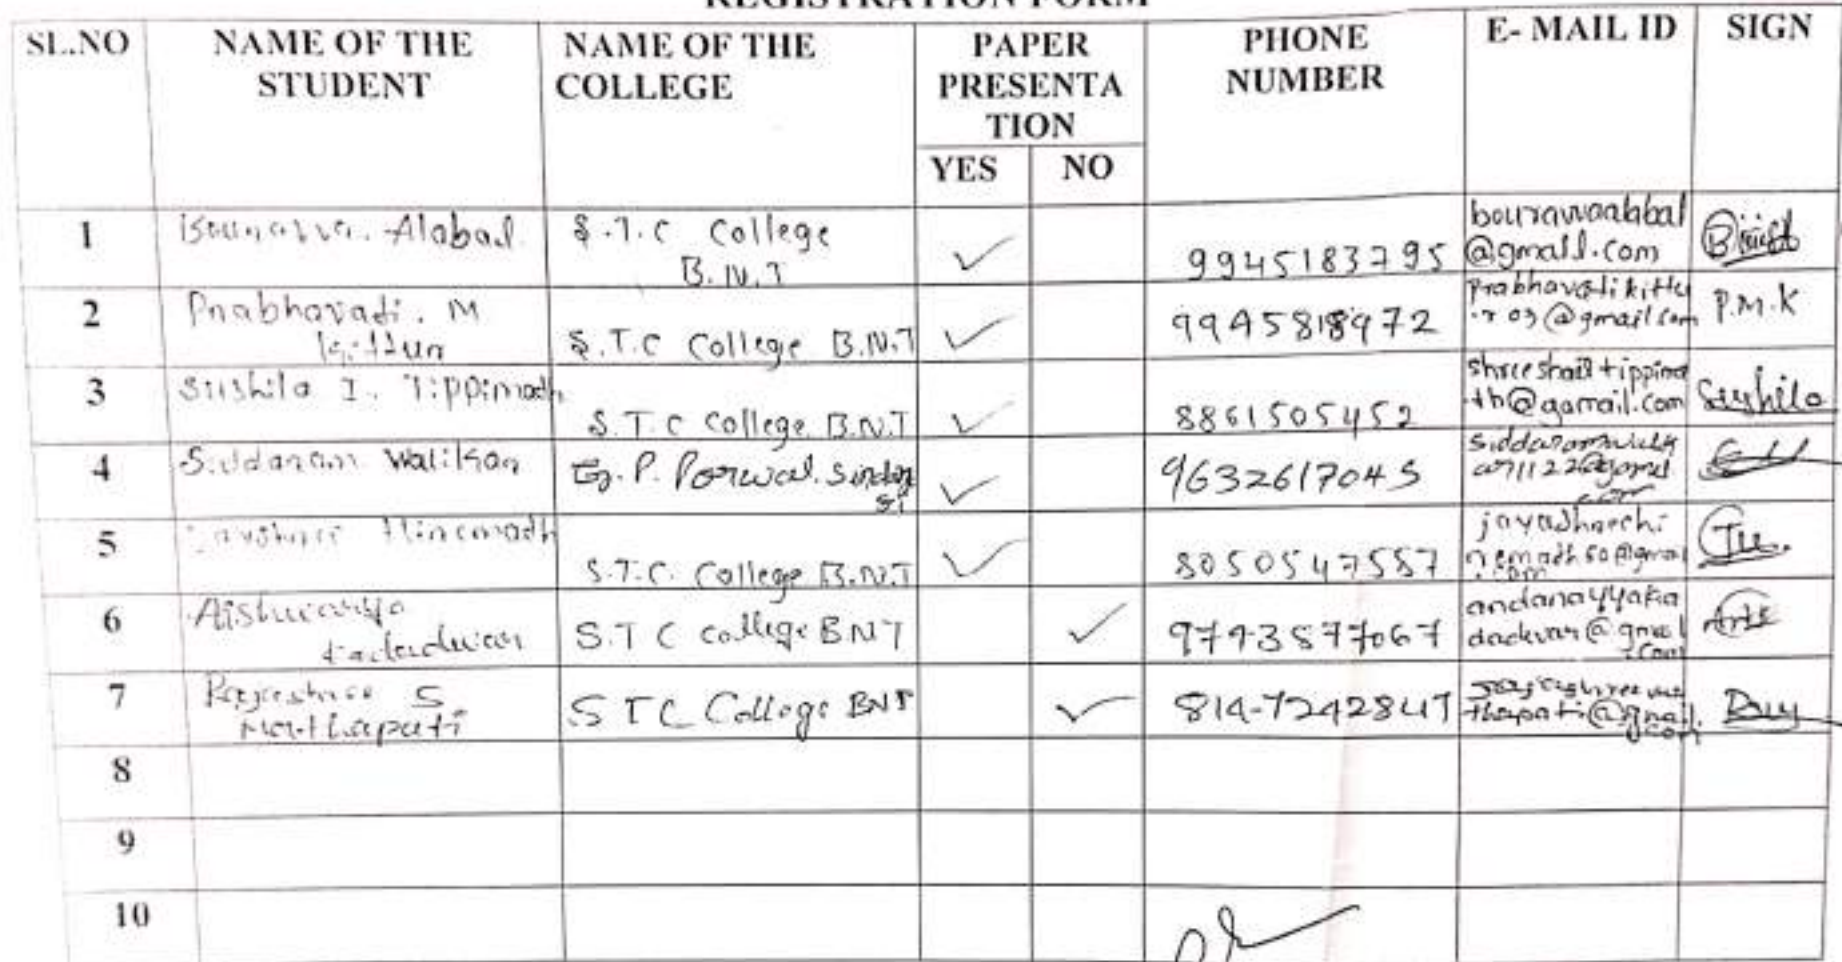 REGISTRATION FORM
SL.NO NAME OF THE STUDENT NAME OF THE COLLEGE PAPER PRESENTA TION PHONE NUMBER E- MAIL ID SIGN
YES NO
1 Alabad S.T.C College B.N.T ✓ 9945183795 @gmail.com
2 Prabhavati. M Kittur S.T.C College B.N.T ✓ 9945818972 prabhavatikittu .r03@gmail.com P.M.K
3 Sushila I. Tippimath S.T.C College B.N.T ✓ 8861505452 shreeshail tippima th@gamail.com Sushila
4 Siddaram Walikar G.P. Porwal. Sindagi ✓ 9632617045
5 Hiremath S.T.C. College B.N.T ✓ 8050547557 jayashreehi remath50@gmail .com
6 Aishwarya S.T C college BNT ✓ 9743577067 andanayyaka dackvar@gmail .com
7 Rajeshree S Mathapati S T C College BNT ✓ 814-7242847 thapati@gmail. com
8
9
10